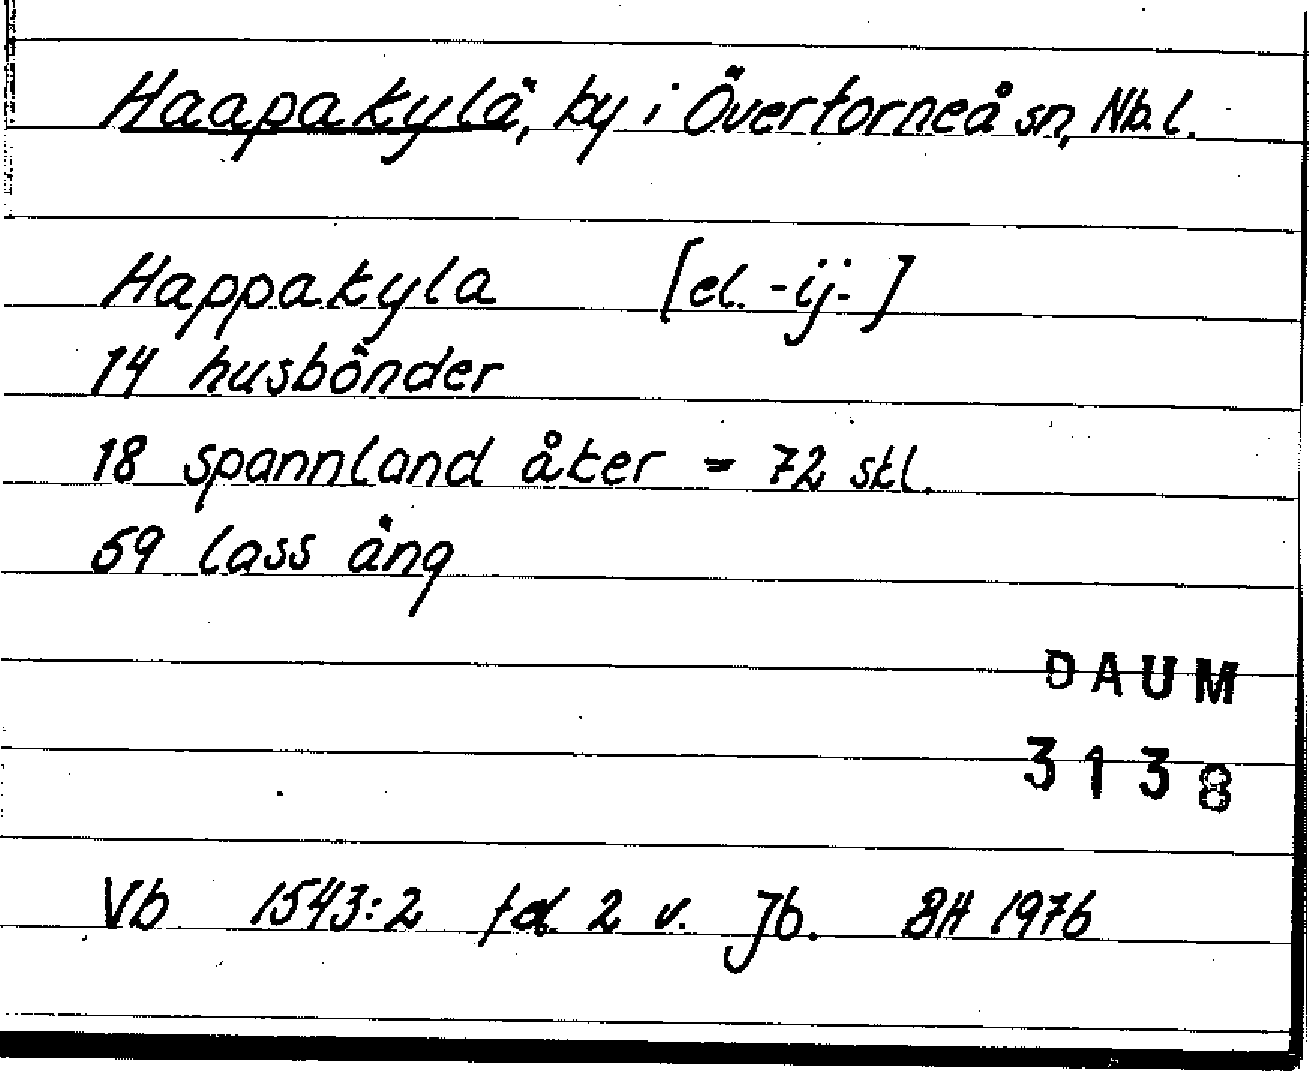 Haapakylä, by i Övertorneå sn, Nb.l.
Happakyla [el. -ij-]
14 husbönder
18 spannland åker = 72 skl.
59 lass äng
DAUM
3138
Vb 1543:2 fol. 2 v. Jb. BH 1976